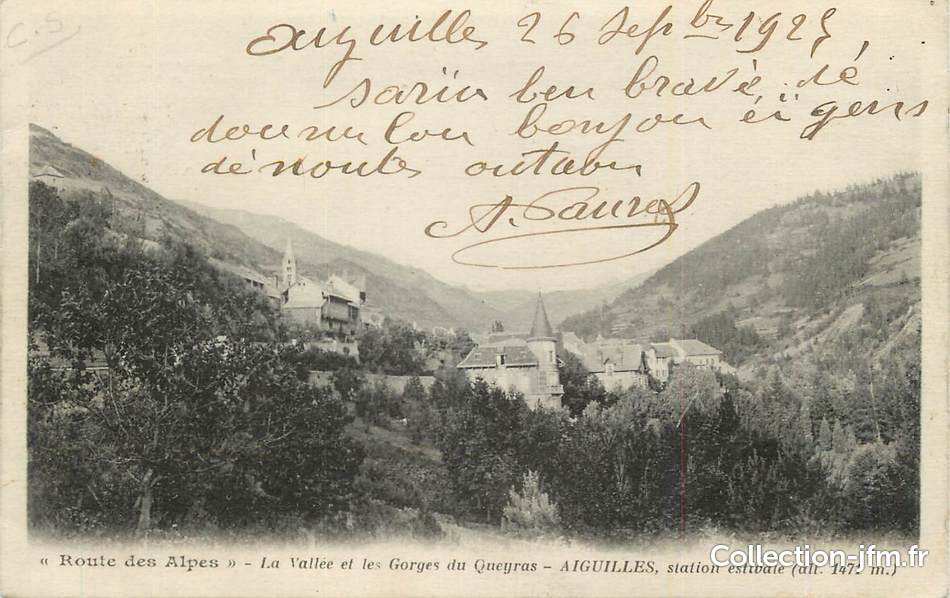 C.S
Aiguilles 26 Sepbre 1925,
sariü ben bravé dé
dounu lou bonjou éi gens
dé nouté outabu
A. Faure
« Route des Alpes » - La Vallée et les Gorges du Queyras - AIGUILLES, station estivale (alt. 1475 m.)
Collection-jfm.fr